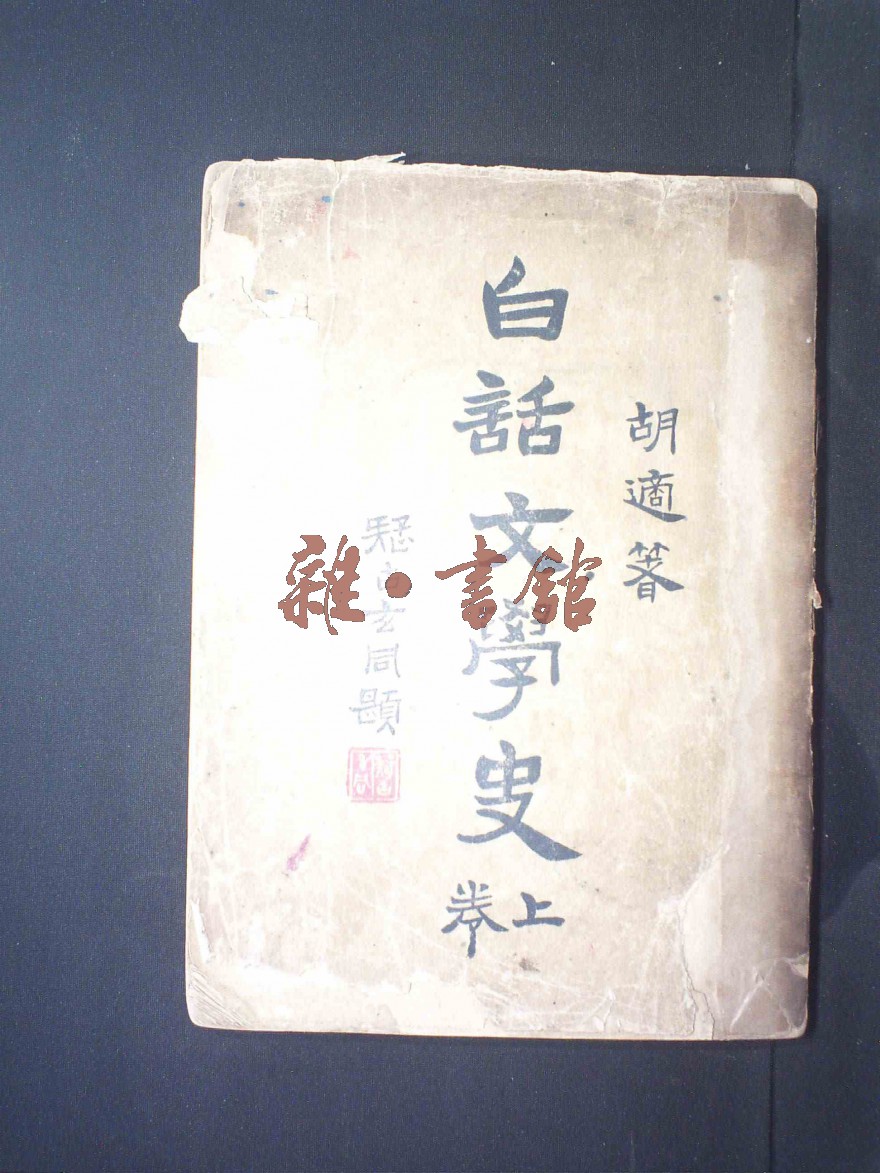 胡適著
白話文學史
上卷
疑古玄同題
雜·書館